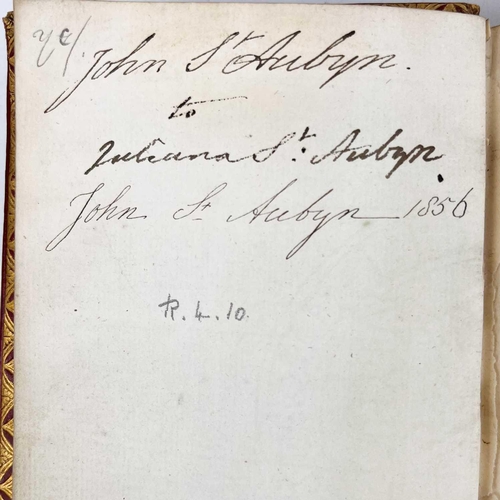 John St Aubyn.
to
Juliana St. Aubyn
John St Aubyn 1856
R.4.10.